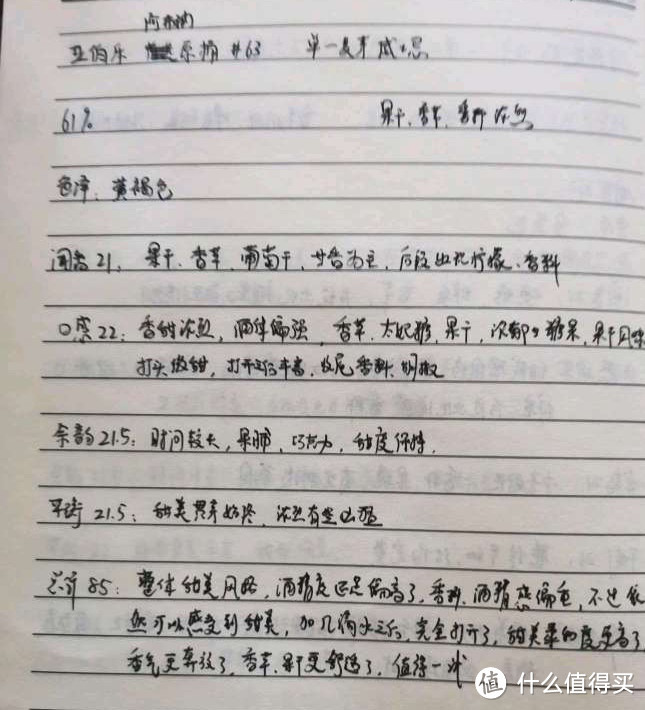 阿布纳
亚伯乐 原桶 #63 单一麦芽威士忌
61% 果干、香草、香料 浓烈
色泽：黄褐色
闻香21：果干、香草、葡萄干、甘香为主，后段出现柠檬、香料
口感22：香甜浓烈，酒体偏强，香草、太妃糖，果干，浓郁的糖果，果干风味
打头微甜，打开之后丰富，收尾香料、胡椒
余韵21.5：时间较长，果脯，巧克力，甜度保持
平衡21.5：甜美贯穿始终，浓烈有些凶猛
总评85：整体甜美风格，酒精度还是偏高了，香料、酒精感偏重，不过依
然可以感受到甜美，加几滴水之后，完全打开了，甜美柔和度更高了
香气更奔放了，香草、果干更舒适了，值得一试
值 什么值得买